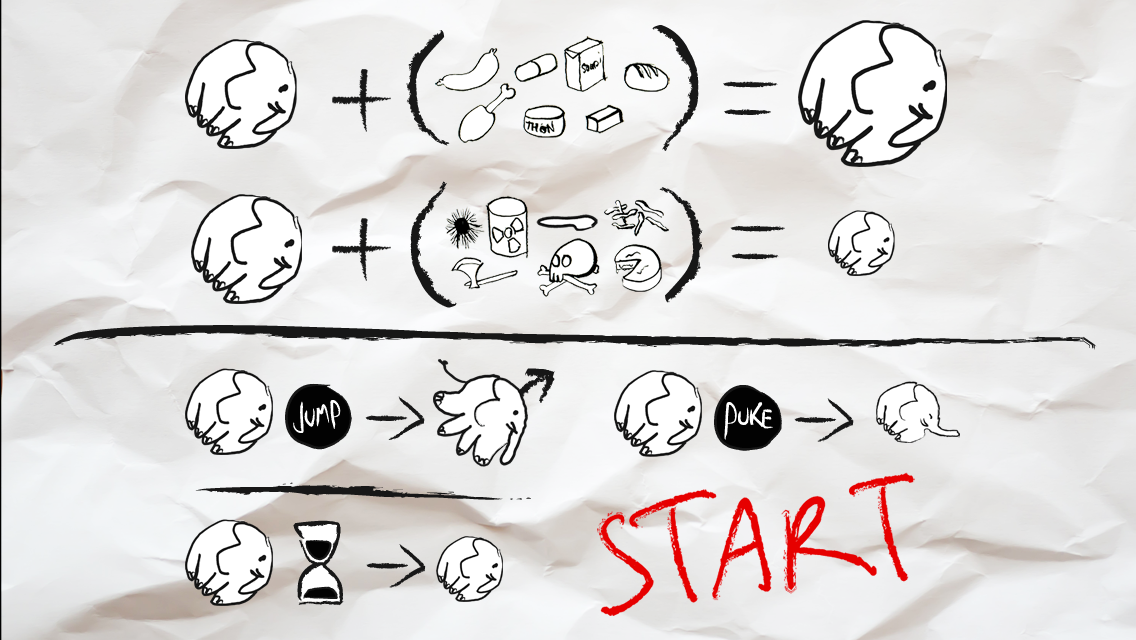 THON
JUMP
PUKE
START